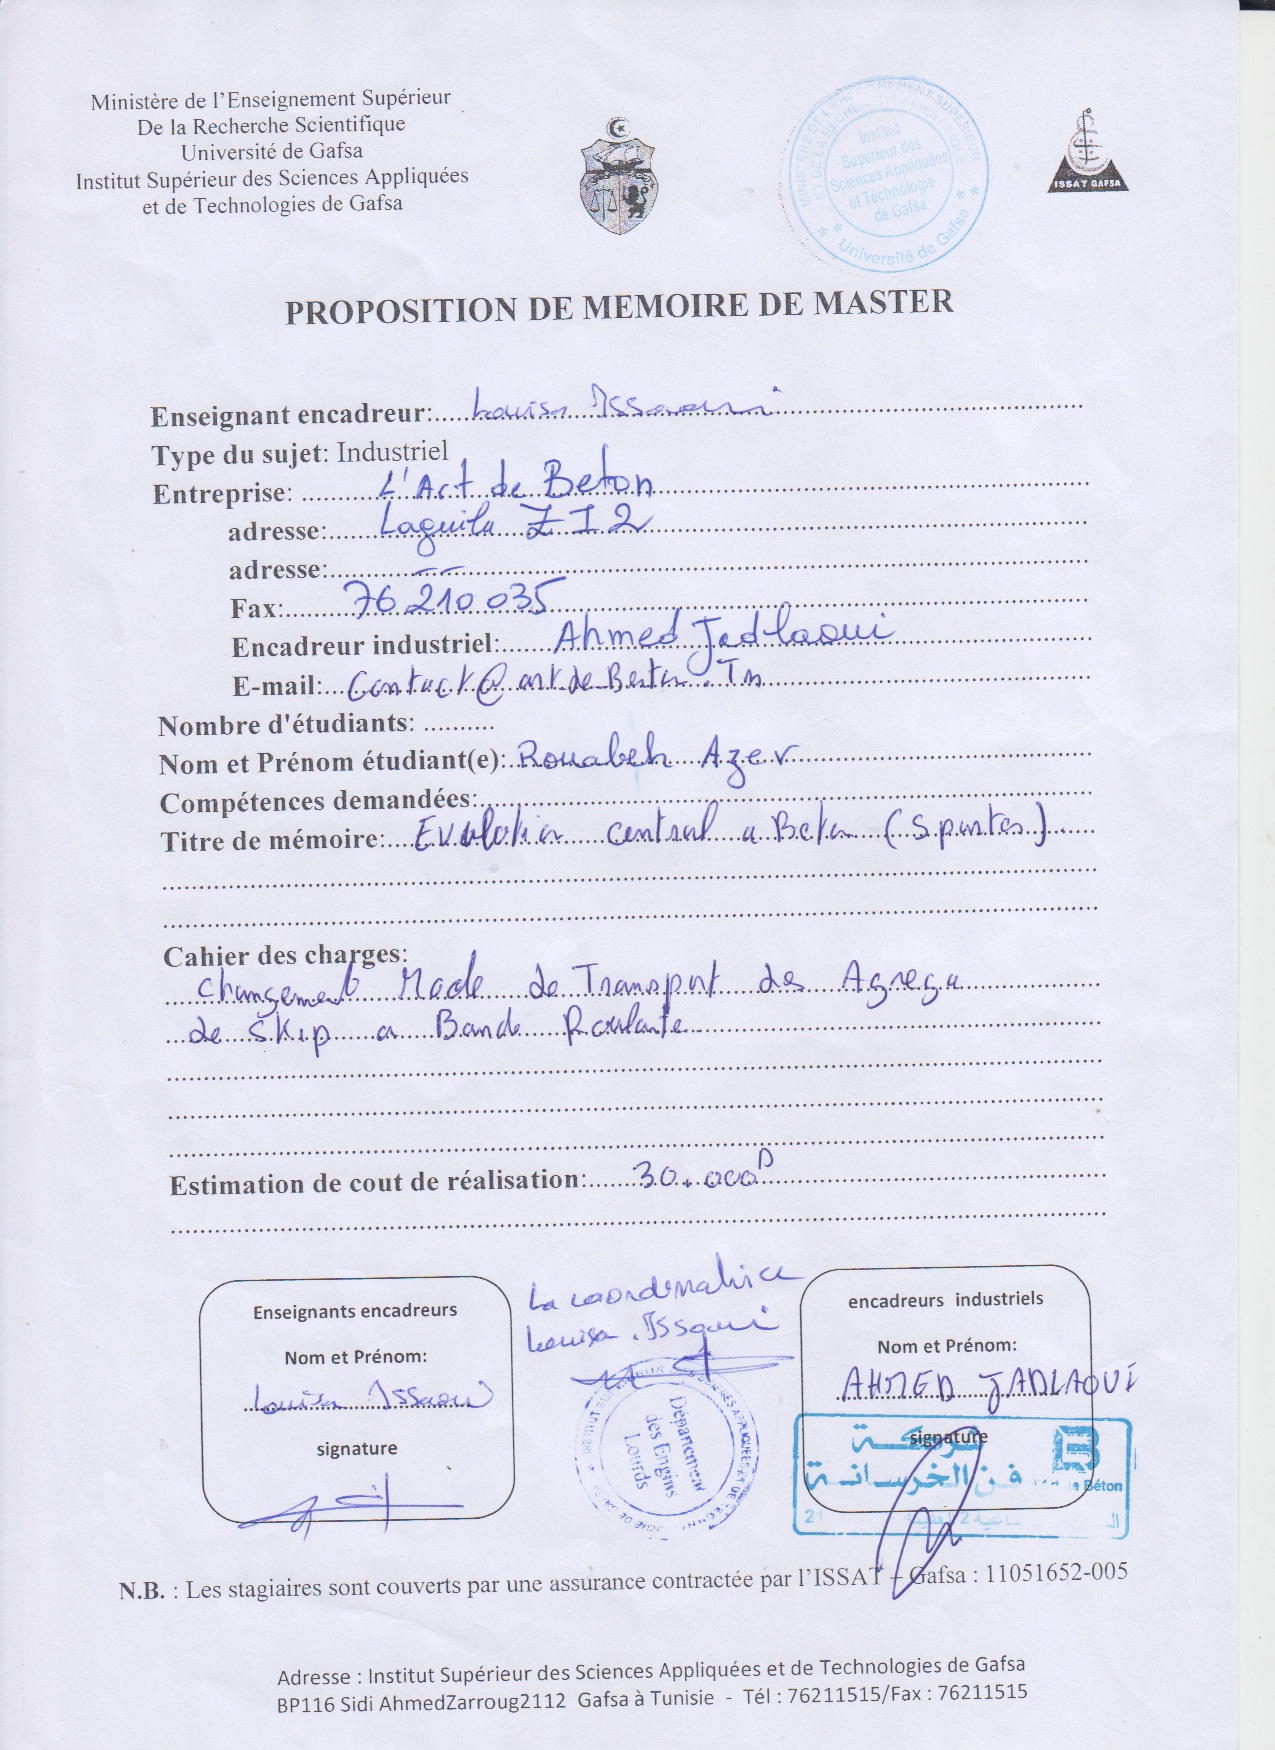 Ministère de l'Enseignement Supérieur
De la Recherche Scientifique
Université de Gafsa
Institut Supérieur des Sciences Appliquées
et de Technologies de Gafsa
Institut
Superieur des
Sciences Appliquées
et Technologie
de Gafsa
Université de Gafsa
ISSAT GAFSA
PROPOSITION DE MEMOIRE DE MASTER
Enseignant encadreur: Louisa Issaoui
Type du sujet: Industriel
Entreprise: L'Art de Beton
adresse: Laguila Z I 2
adresse:
Fax: 76 210 035
Encadreur industriel: Ahmed Jadlaoui
E-mail: Contact@
Nombre d'étudiants:
Nom et Prénom étudiant(e): Rouabeh Azer
Compétences demandées:
Titre de mémoire: central a Beton
Cahier des charges:
Changement Mode de Transport des Agrega
de Skip a Bande Roulante
Estimation de cout de réalisation: 30.000D
La coordinatrice
Louisa Issaoui
Enseignants encadreurs
Nom et Prénom:
Louisa Issaoui
signature
encadreurs industriels
Nom et Prénom:
AHMED JADLAOUI
signature
Département
des Engins
Lourds
شركة
فن الخرسانة
Béton
N.B. : Les stagiaires sont couverts par une assurance contractée par l'ISSAT – Gafsa : 11051652-005
Adresse : Institut Supérieur des Sciences Appliquées et de Technologies de Gafsa
BP116 Sidi AhmedZarroug2112 Gafsa à Tunisie - Tél : 76211515/Fax : 76211515